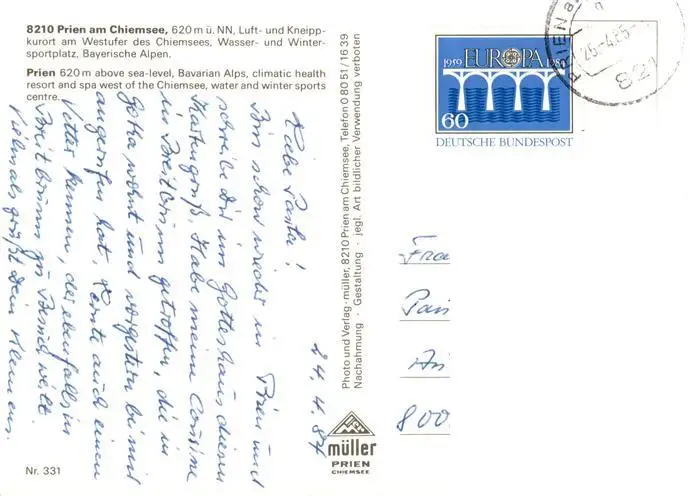 8210 Prien am Chiemsee, 620 m ü. NN, Luft- und Kneipp-
kurort am Westufer des Chiemsees, Wasser- und Winter-
sportplatz, Bayerische Alpen.
Prien 620 m above sea-level, Bavarian Alps, climatic health
resort and spa west of the Chiemsee, water and winter sports
centre.
24.4.84
Liebe Paula!
Bin schon wieder in Prien und
schreibe Dir im Gotteshaus diesen
Kartengruß. Habe meine Cousine
in Breitbrunn getroffen, die in
Gotha wohnt und vorgestern bei mir
angerufen hat, lernte auch einen
Vetter kennen, der ebenfalls in
Breitbrunn zu Besuch weilt.
Vielmals grüßt Dein Klemens.
Nr. 331
Photo und Verlag · müller, 8210 Prien am Chiemsee, Telefon 0 80 51/16 39
Nachahmung · Gestaltung · jegl. Art bildlicher Verwendung verboten
müller
PRIEN
CHIEMSEE
1959 EUROPA 1984
60
DEUTSCHE BUNDESPOST
PRIEN a
821
Frau
800